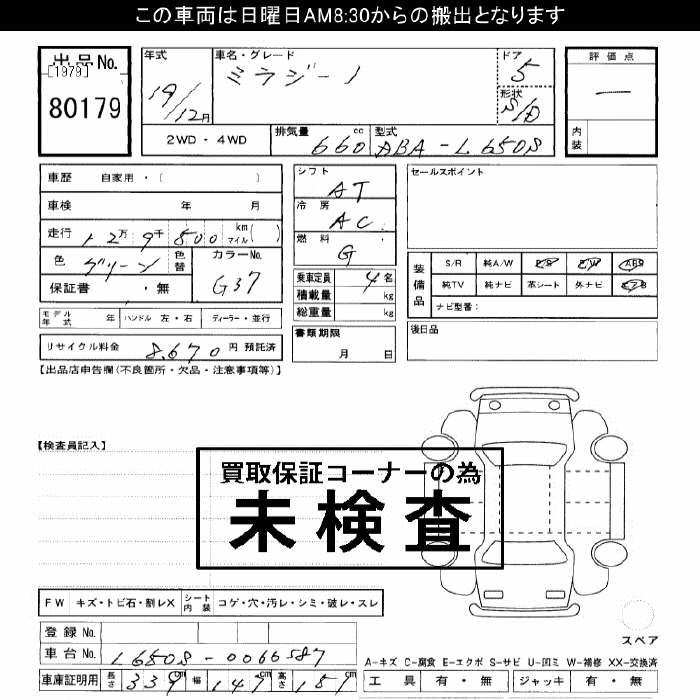 この車両は日曜日AM8:30からの搬出となります
出品No.
[1979]
80179
年式
19/12月
車名・グレード
ミラジーノ
ドア
5
形状
S/D
2WD・4WD
排気量
660 cc
型式
ABA-L650S
評価点
ー
内装
車歴 自家用・( )
車検 年 月
走行 12万9千800 km マイル( )
色 グリーン
色替
カラーNo.
G37
保証書 ・無
モデル年式 年
ハンドル 左・右
ディーラー・並行
リサイクル料金 8,670 円 預託済
シフト
AT
冷房
AC
燃料
G
乗車定員 4名
積載量 kg
総重量 kg
書類期限
月 日
セールスポイント
装備品
S/R 純A/W P/S P/W ABS
純TV 純ナビ 革シート 外ナビ エアB
ナビ型番:
後日品
【出品店申告欄(不良箇所・欠品・注意事項等)】
【検査員記入】
買取保証コーナーの為
未検査
FW キズ・トビ石・割レX
シート内装 コゲ・穴・汚レ・シミ・破レ・スレ
登録No.
車台No. L650S-0066587
車庫証明用 長さ 339cm 幅 147cm 高さ 151cm
スペア
A-キズ C-腐食 E-エクボ S-サビ U-凹ミ W-補修 XX-交換済
工具 有・無 ジャッキ 有・無